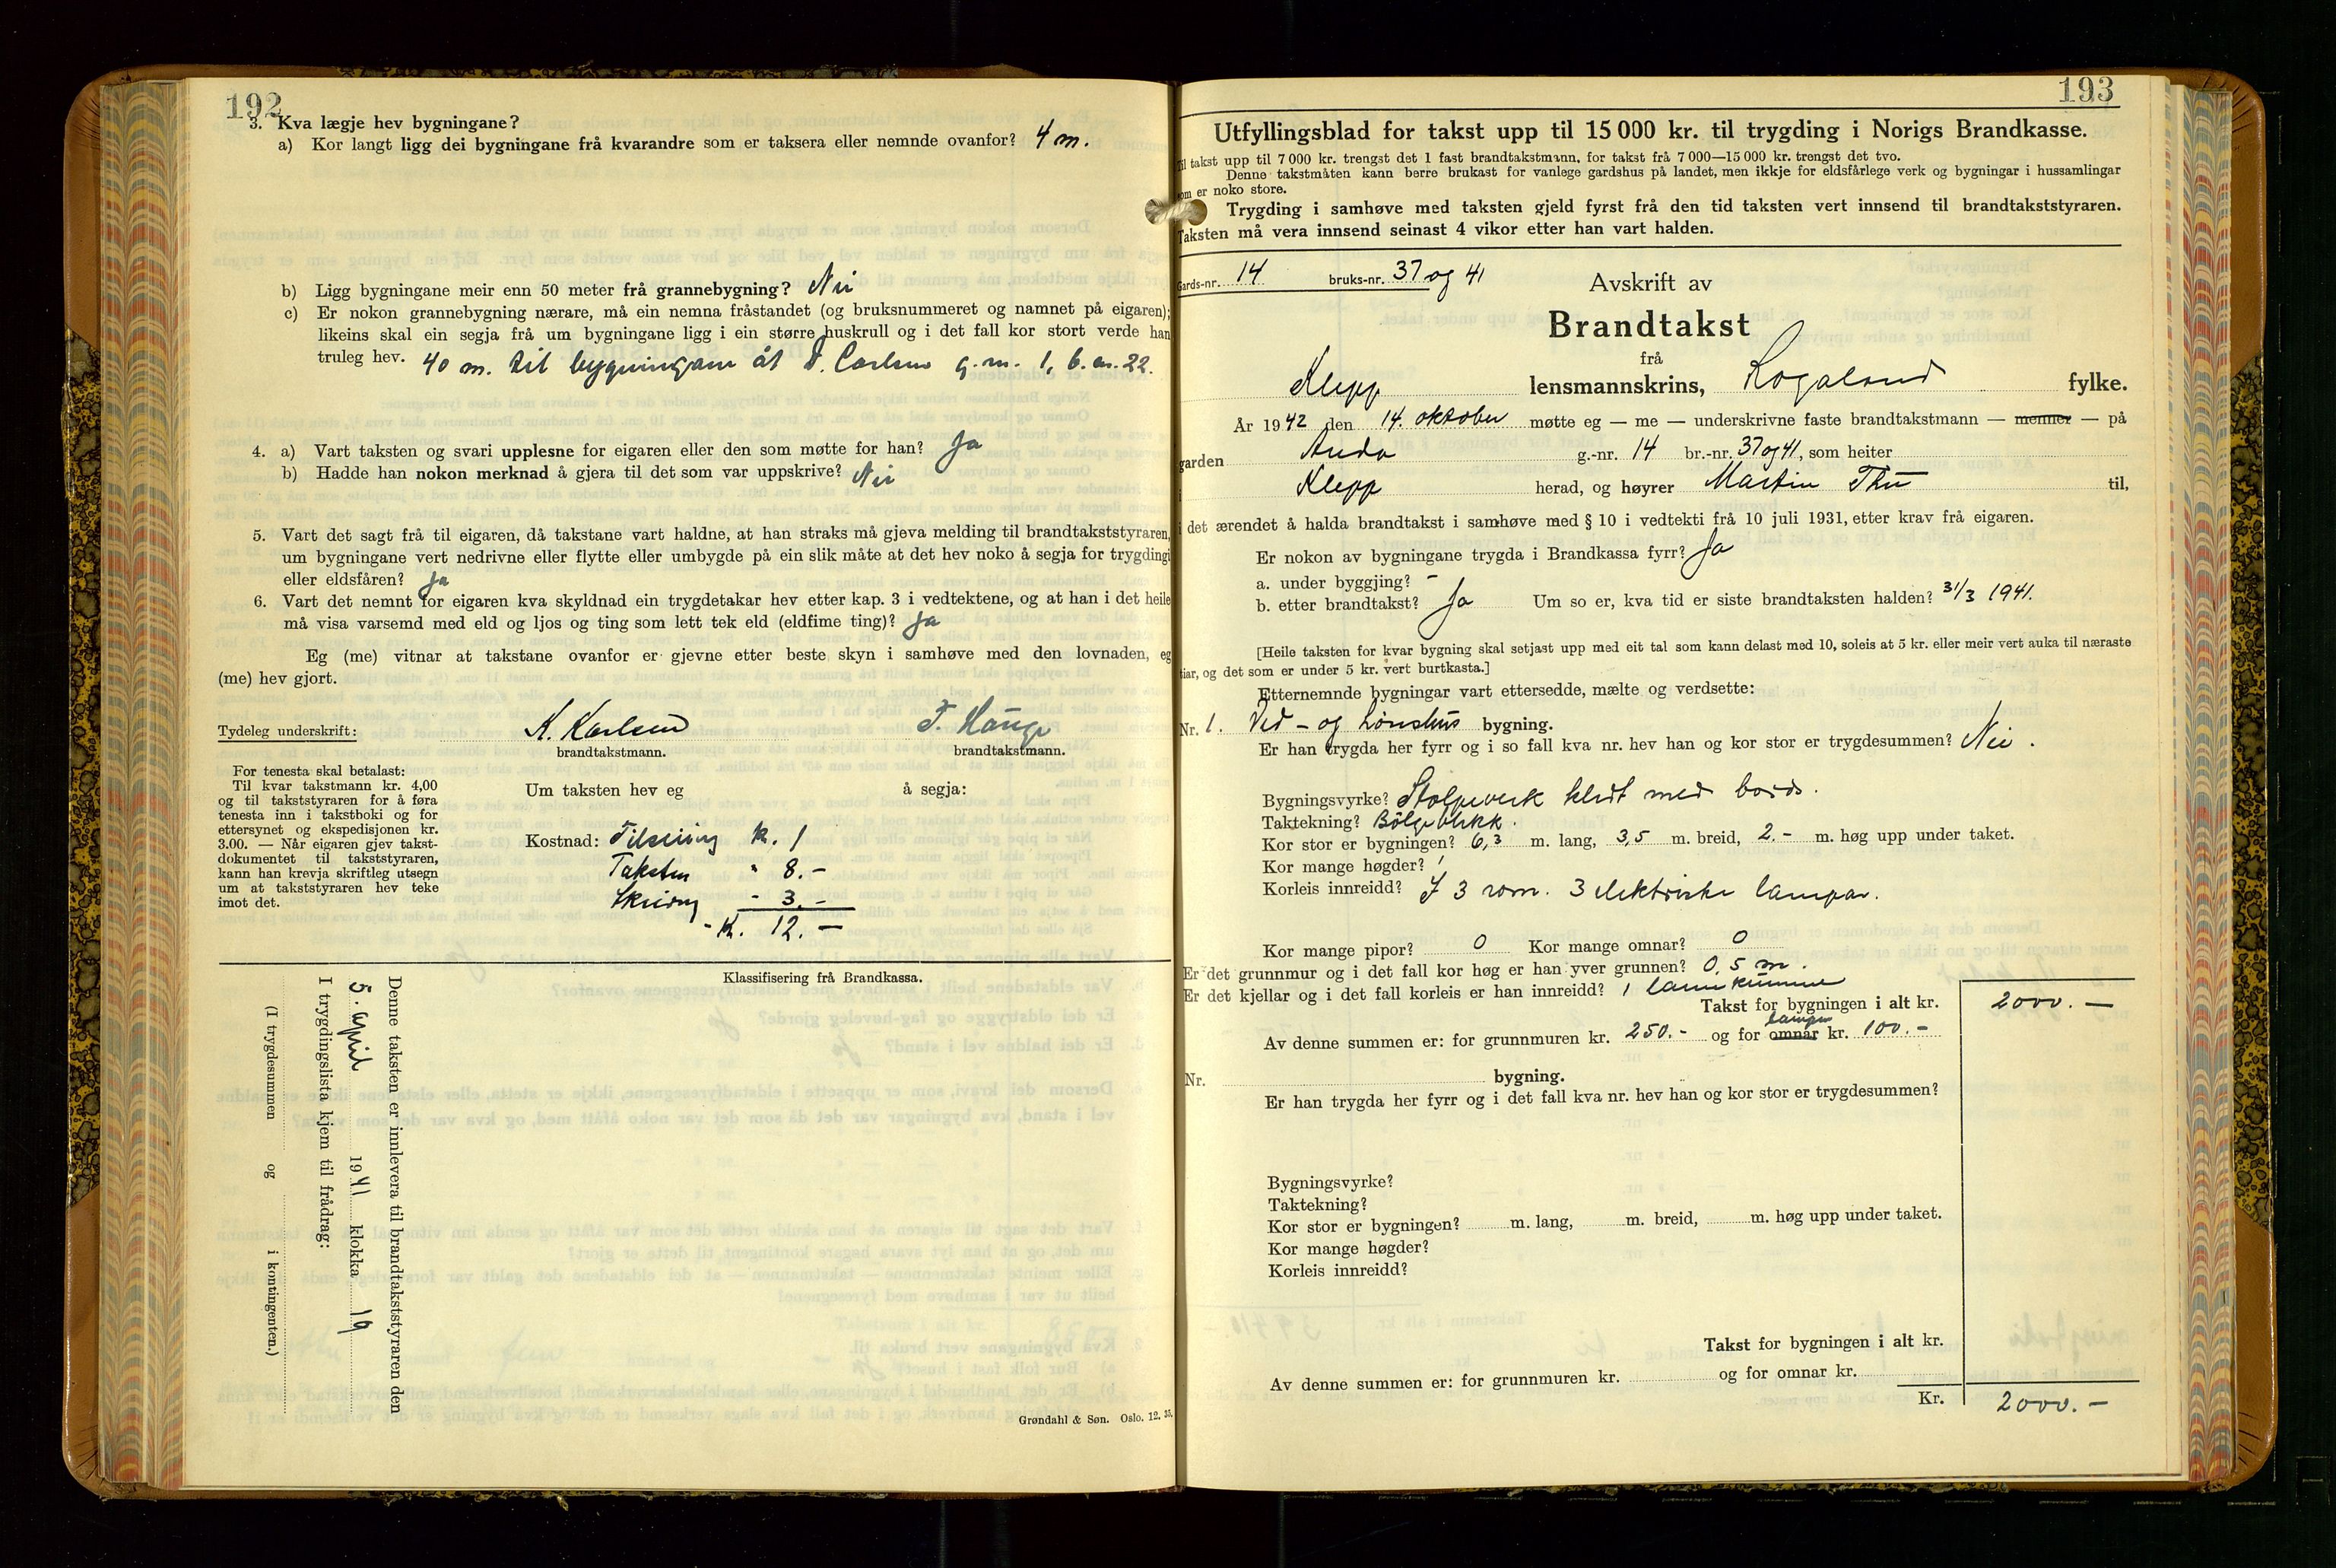 192
3. Kva lægje hev bygningane?
a) Kor langt ligg dei bygningane frå kvarandre som er taksera eller nemnde ovanfor? 4 m.
b) Ligg bygningane meir enn 50 meter frå grannebygning? Nei
c) Er nokon grannebygning nærare, må ein nemna fråstandet (og bruksnummeret og namnet på eigaren);
likeins skal ein segja frå um bygningane ligg i ein større huskrull og i det fall kor stort verde han
truleg hev. 40 m. til bygningane åt Carlsen g.nr. 1, b.nr. 22.
4. a) Vart taksten og svari upplesne for eigaren eller den som møtte for han? Ja
b) Hadde han nokon merknad å gjera til det som var uppskrive? Nei
5. Vart det sagt frå til eigaren, då takstane vart haldne, at han straks må gjeva melding til brandtakststyraren,
um bygningane vert nedrivne eller flytte eller umbygde på ein slik måte at det hev noko å segja for trygdingi
eller eldsfåren? Ja
6. Vart det nemnt for eigaren kva skyldnad ein trygdetakar hev etter kap. 3 i vedtektene, og at han i det heile
må visa varsemd med eld og ljos og ting som lett tek eld (eldfime ting)? Ja
Eg (me) vitnar at takstane ovanfor er gjevne etter beste skyn i samhøve med den lovnaden, eg
(me) hev gjort.
Tydeleg underskrift: K. Karlsen T. Hauge
brandtakstmann. brandtakstmann.
For tenesta skal betalast:
Til kvar takstmann kr. 4,00
og til takststyraren for å føra
tenesta inn i takstboki og for
ettersynet og ekspedisjonen kr.
3.00. — Når eigaren gjev takst-
dokumentet til takststyraren,
kann han krevja skriftleg utsegn
um at takststyraren hev teke
imot det.
Um taksten hev eg å segja:
Kostnad: kr. 1
Taksten " 8.-
Skriving - 3.-
Kr. 12.-
Klassifisering frå Brandkassa.
Denne taksten er innlevera til brandtakststyraren den
5. april 1941 klokka 19
I trygdingslista kjem til frådrag:
(I trygdesummen og i kontingenten.)
Grøndahl & Søn. Oslo. 12. 35.
193
Utfyllingsblad for takst upp til 15 000 kr. til trygding i Norigs Brandkasse.
Til takst upp til 7 000 kr. trengst det 1 fast brandtakstmann, for takst frå 7 000—15 000 kr. trengst det tvo.
Denne takstmåten kann berre brukast for vanlege gardshus på landet, men ikkje for eldsfårlege verk og bygningar i hussamlingar
som er noko store.
Trygding i samhøve med taksten gjeld fyrst frå den tid taksten vert innsend til brandtakststyraren.
Taksten må vera innsend seinast 4 vikor etter han vart halden.
Gards-nr. 14 bruks-nr. 37 og 41
Avskrift av
Brandtakst
frå
Klepp lensmannskrins, Rogaland fylke.
År 1942 den 14. oktober møtte eg — me — underskrivne faste brandtakstmann — menner — på
garden Anda g.-nr. 14 br.-nr. 37 og 41, som heiter
i Klepp herad, og høyrer Martin Thu til,
i det ærendet å halda brandtakst i samhøve med § 10 i vedtekti frå 10 juli 1931, etter krav frå eigaren.
Er nokon av bygningane trygda i Brandkassa fyrr? Ja
a. under byggjing? -
b. etter brandtakst? Ja Um so er, kva tid er siste brandtaksten halden? 31/3 1941.
[Heile taksten for kvar bygning skal setjast upp med eit tal som kann delast med 10, soleis at 5 kr. eller meir vert auka til næraste
tiar, og det som er under 5 kr. vert burtkasta.]
Etternemnde bygningar vart ettersedde, mælte og verdsette:
Nr. 1. Ved- og hønshus bygning.
Er han trygda her fyrr og i so fall kva nr. hev han og kor stor er trygdesummen? Nei.
Bygningsvyrke? Stolpeverk kledt med bord.
Taktekning? Bölgeblikk.
Kor stor er bygningen? 6,3 m. lang, 3,5 m. breid, 2.- m. høg upp under taket.
Kor mange høgder? 1
Korleis innreidd? I 3 rom. 3 elektriske lampar.
Kor mange pipor? 0 Kor mange omnar? 0
Er det grunnmur og i det fall kor høg er han yver grunnen? 0,5 m.
Er det kjellar og i det fall korleis er han innreidd? 1 landkumme
Takst for bygningen i alt kr. 2000.-
Av denne summen er: for grunnmuren kr. 250.- og for omnar lampar kr. 100.-
Nr. bygning.
Er han trygda her fyrr og i det fall kva nr. hev han og kor stor er trygdesummen?
Bygningsvyrke?
Taktekning?
Kor stor er bygningen? m. lang, m. breid, m. høg upp under taket.
Kor mange høgder?
Korleis innreidd?
Takst for bygningen i alt kr.
Av denne summen er: for grunnmuren kr. og for omnar kr.
Kr. 2000.-